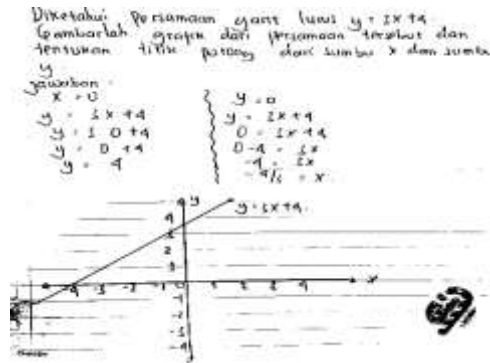 Diketahui Persamaan garis lurus y = 3x + 4
Gambarlah grafik dari persamaan tersebut dan
tentukan titik potong dari sumbu x dan sumbu
y
Jawaban
x = 0
y = 3x + 4
y = 3 0 + 4
y = 0 + 4
y = 4
y = 0
y = 3x + 4
0 = 3x + 4
0 - 4 = 3x
-4 = 3x
-4/3 = x
y
y = 3x + 4
x